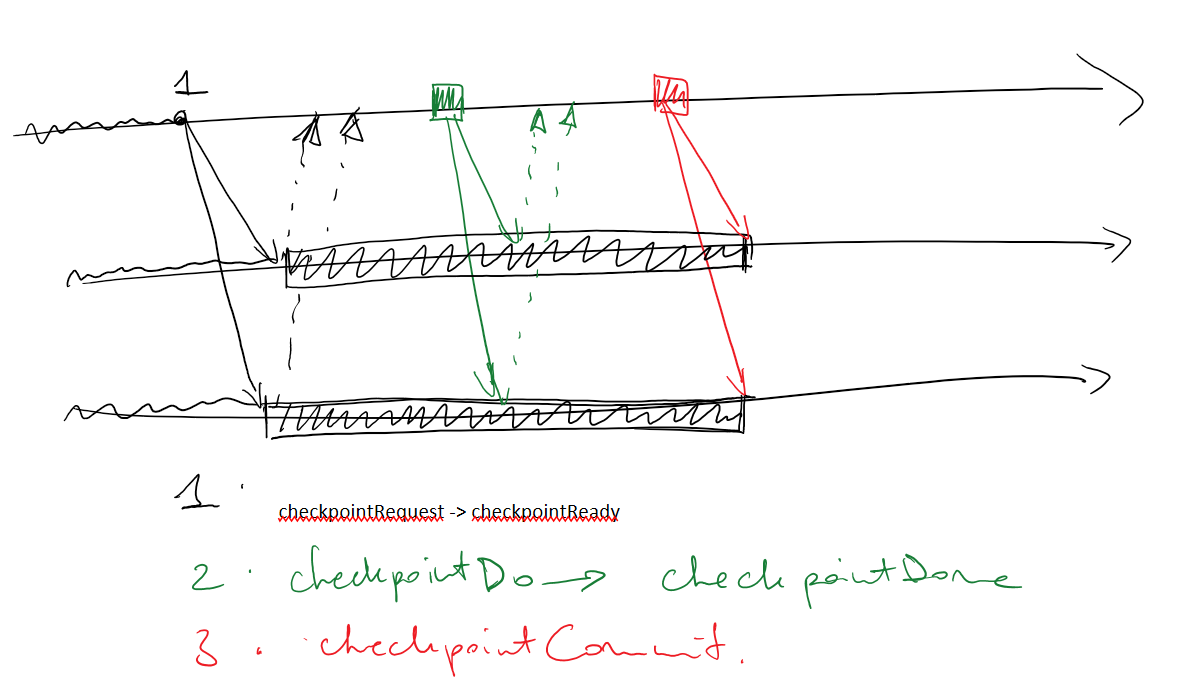 1
1.
checkpointRequest -> checkpointReady
2. checkpointDo → checkpointDone
3. checkpointCommit.